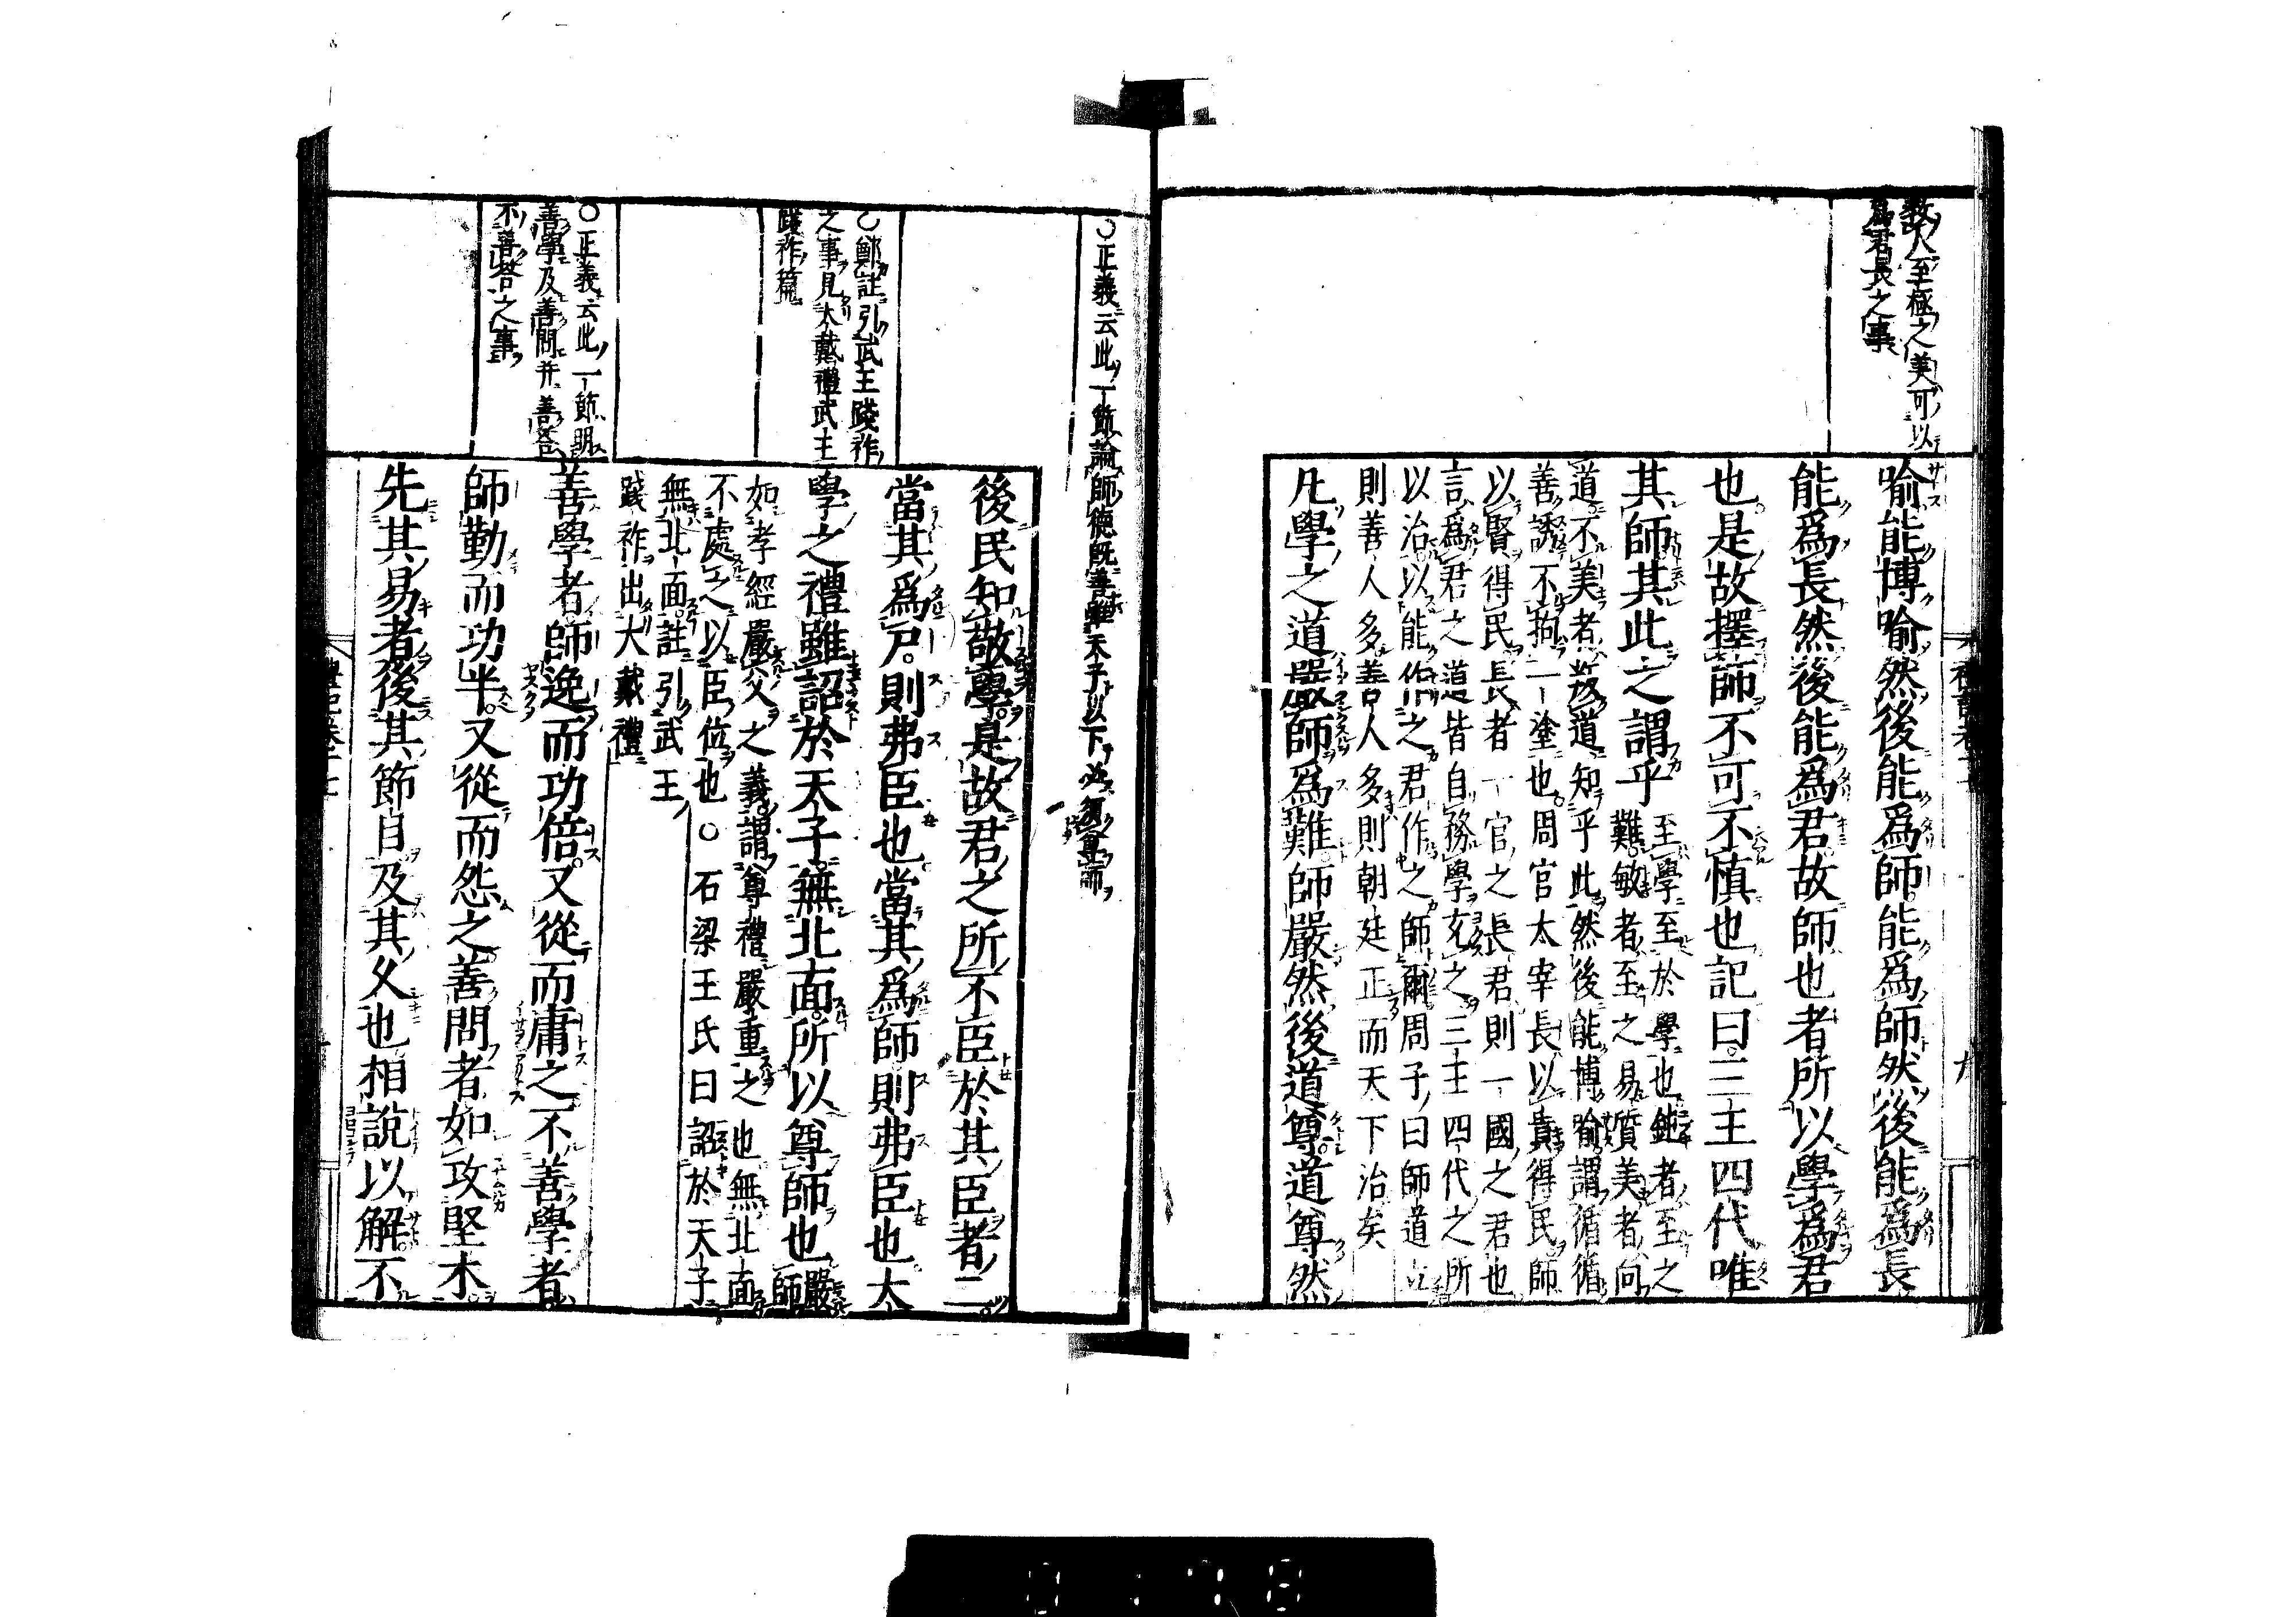 教人至極之美可以
爲君長之事
喻能博喻然後能爲師能爲師然後能爲長
能爲長然後能爲君故師也者所以學爲君
也是故擇師不可不慎也記曰三王四代唯
其師其此之謂乎
至學至於學也鈍者至之
難敏者至之易質美者向
道不美者叛道知乎此然後能博喻謂循循
善誘不拘一塗也周官太宰長以貴得民師
以賢得民長者一官之長君則一國之君也
言爲君之道皆自務學充之三王四代之所
以治以能作之君作之師爾周子曰師道立
則善人多善人多則朝廷正而天下治矣
凡學之道嚴師爲難師嚴然後道尊道尊然
禮記卷十七
九
○正義云此一節論師德既善雖天子以下必須尊師
○鄭註引武王踐祚
之事見大戴禮武王
踐祚篇
○正義云此一節明
善學及善問并善答
不善答之事
後民知敬學是故君之所不臣於其臣者二
當其爲尸則弗臣也當其爲師則弗臣也大
學之禮雖詔於天子無北面所以尊師也
嚴
師
如孝經嚴父之義謂尊禮嚴重之也無北面
不處之以臣位也○石梁王氏曰詔於天子
無北面註引武王
踐祚出大戴禮
善學者師逸而功倍又從而庸之不善學者
師勤而功半又從而怨之善問者如攻堅木
先其易者後其節目及其久也相說以解不